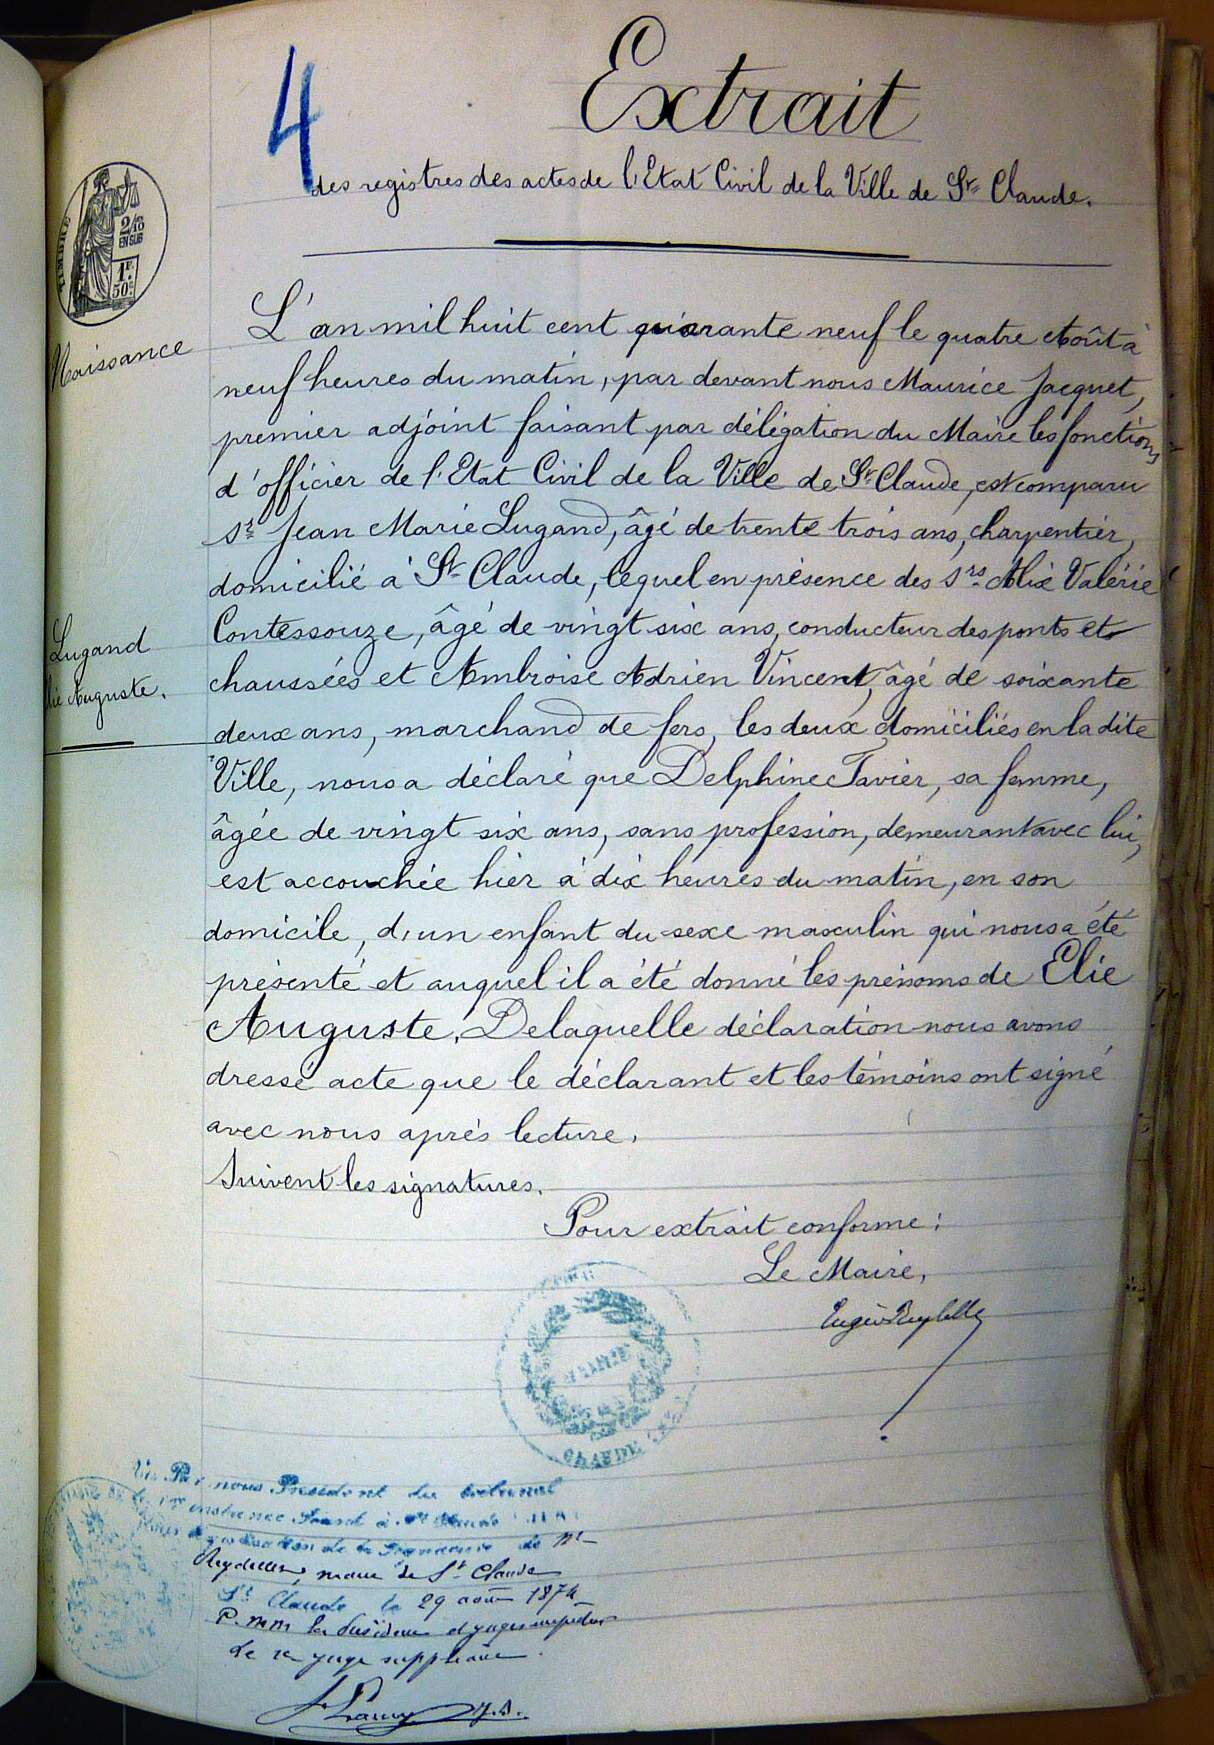 4
Extrait
des registres des actes de l'Etat Civil de la Ville de St Claude.
TIMBRE
2/10
EN SUS
1F
50c
Naissance
L'an mil huit cent quarante neuf le quatre Août à
neuf heures du matin, par devant nous Maurice Jacquet,
premier adjoint faisant par délégation du Maire les fonctions
d'officier de l'Etat Civil de la Ville de St Claude, est comparu
Sr Jean Marie Lugand, âgé de trente trois ans, charpentier,
domicilié à St Claude, lequel en présence des Srs Alix Valérie
Contessouze, âgé de vingt six ans, conducteur des ponts et
Lugand
Elie Auguste.
chaussées et Ambroise Adrien Vincent, âgé de soixante
deux ans, marchand de fers, les deux domiciliés en la dite
Ville, nous a déclaré que Delphine Tavier, sa femme,
âgée de vingt six ans, sans profession, demeurant avec lui,
est accouchée hier à dix heures du matin, en son
domicile, d'un enfant du sexe masculin qui nous a été
présenté et auquel il a été donné les prénoms de Elie
Auguste. De laquelle déclaration nous avons
dressé acte que le déclarant et les témoins ont signé
avec nous après lecture.
Suivent les signatures.
Pour extrait conforme:
Le Maire,
CLAUDE
Vu Par nous Président du tribunal
de 1re instance Séant à St Claude
pour légalisation de la Signature de Mr
Reydellet, maire de St Claude
St Claude le 29 août 1874
P. mm les Président et juges empêchés
Le 1er juge suppléant